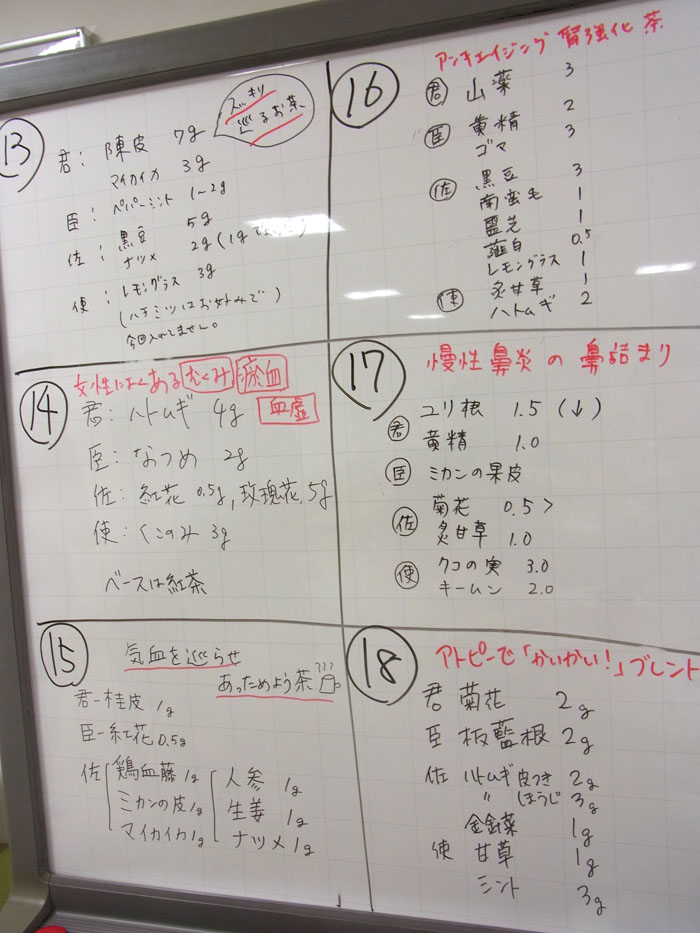 13
スッキリ
巡るお茶
君: 陳皮 7g
マイカイカ 3g
臣: ペパーミント 1〜2g
佐: 黒豆 5g
ナツメ 2g(1gで
使: レモングラス 3g
(ハチミツはお好みで)
今回入れてません。
14
女性によくあるむくみ 瘀血
血虚
君: ハトムギ 4g
臣: なつめ 2g
佐: 紅花 0.5g, 玫瑰花.5g
使: くこのみ 3g
ベースは紅茶
15
気血を巡らせ
あっためよう茶
君-桂皮 1g
臣-紅花 0.5g
佐 鶏血藤 1g 人参 1g
ミカンの皮 1g 生姜 1g
マイカイカ 1g ナツメ 1g
16
アンチエイジング 腎強化茶
君 山薬 3
臣 黄精 2
ゴマ 3
佐 黒豆 3
南蛮毛 1
霊芝 1
薤白 0.5
レモングラス 1
使 炙甘草 1
ハトムギ 2
17
慢性鼻炎の鼻詰まり
君 ユリ根 1.5 (↓)
黄精 1.0
臣 ミカンの果皮
佐 菊花 0.5>
炙甘草 1.0
使 クコの実 3.0
キームン 2.0
18
アトピーで「かいかい!」ブレンド
君 菊花 2g
臣 板藍根 2g
佐 ハトムギ 皮つき 2g
〃 ほうじ 3g
金針菜 1g
使 甘草 1g
ミント 3g